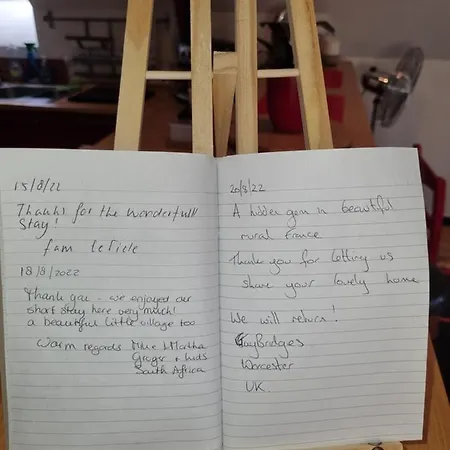 15/8/22
Thanks for the wonderfull
stay!
fam
18/8/2022
Thank you - we enjoyed our
short stay here very much!
a beautiful little village too
Warm regards Mike
+ kids
South Africa
20/8/22
A hidden gem in beautiful
rural France
Thank you for letting us
share your lovely home
We will return!
Guy Bridges
Worcester
UK.